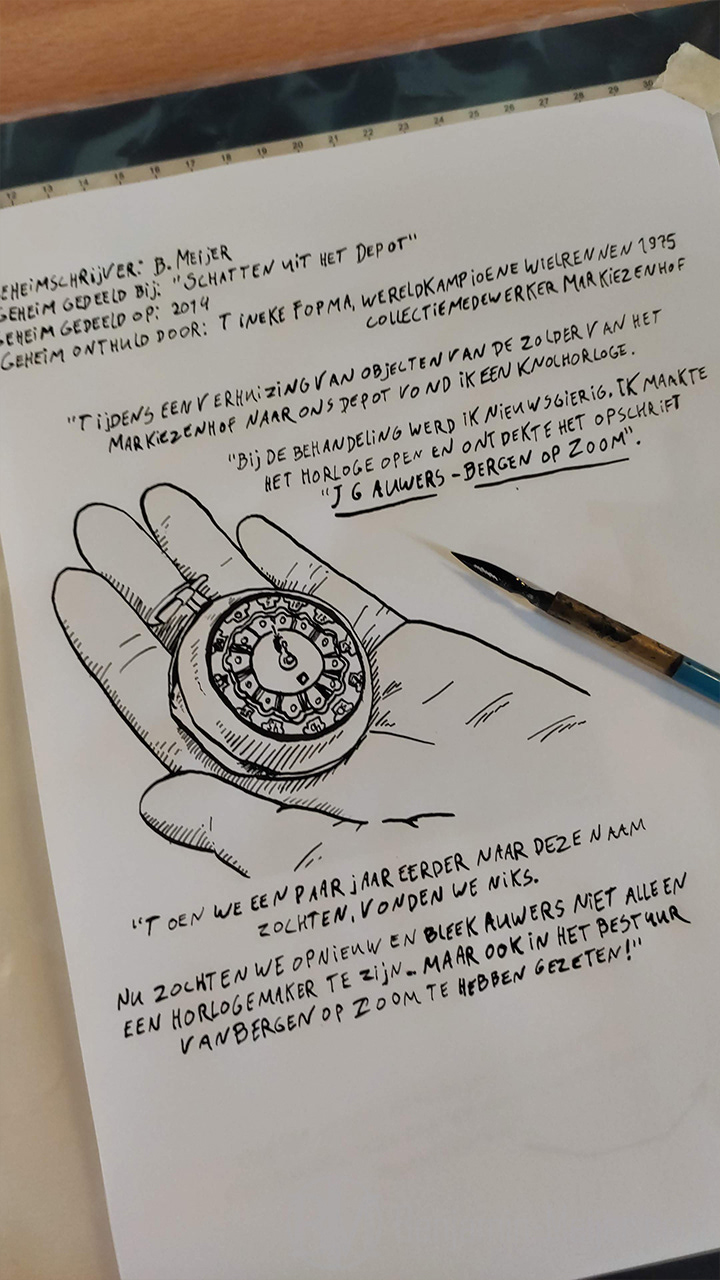 12 13 14 15 16 17 18 19 20 21 22 23 24 25 26 27 28 29 30
EHEIMSCHRIJVER: B. MEIJER
GEHEIM GEDEELD BIJ: "SCHATTEN UIT HET DEPOT"
GEHEIM GEDEELD OP: 2014
GEHEIM ONTHULD DOOR: TINEKE FOPMA, WERELDKAMPIOENE WIELRENNEN 1975
COLLECTIEMEDEWERKER MARKIEZENHOF
"TIJDENS EEN VERHUIZING VAN OBJECTEN VAN DE ZOLDER VAN HET
MARKIEZENHOF NAAR ONS DEPOT VOND IK EEN KNOLHORLOGE.
"BIJ DE BEHANDELING WERD IK NIEUWSGIERIG. IK MAAKTE
HET HORLOGE OPEN EN ONTDEKTE HET OPSCHRIFT
"J G AUWERS - BERGEN OP ZOOM".
"TOEN WE EEN PAAR JAAR EERDER NAAR DEZE NAAM
ZOCHTEN, VONDEN WE NIKS.
NU ZOCHTEN WE OPNIEUW EN BLEEK AUWERS NIET ALLEEN
EEN HORLOGEMAKER TE ZIJN.. MAAR OOK IN HET BESTUUR
VAN BERGEN OP ZOOM TE HEBBEN GEZETEN!"